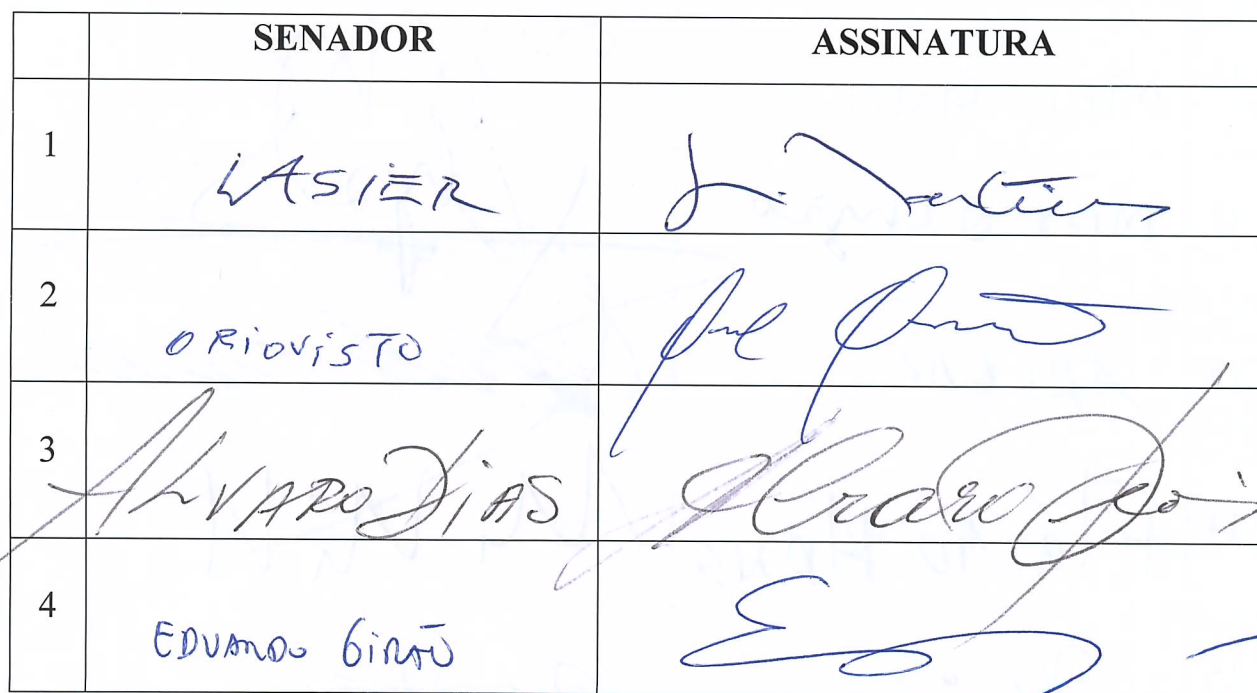 SENADOR ASSINATURA
1 LASIER
2 ORIOVISTO
3 ALVARO DIAS Alvaro Dias
4 EDUARDO GIRÃO